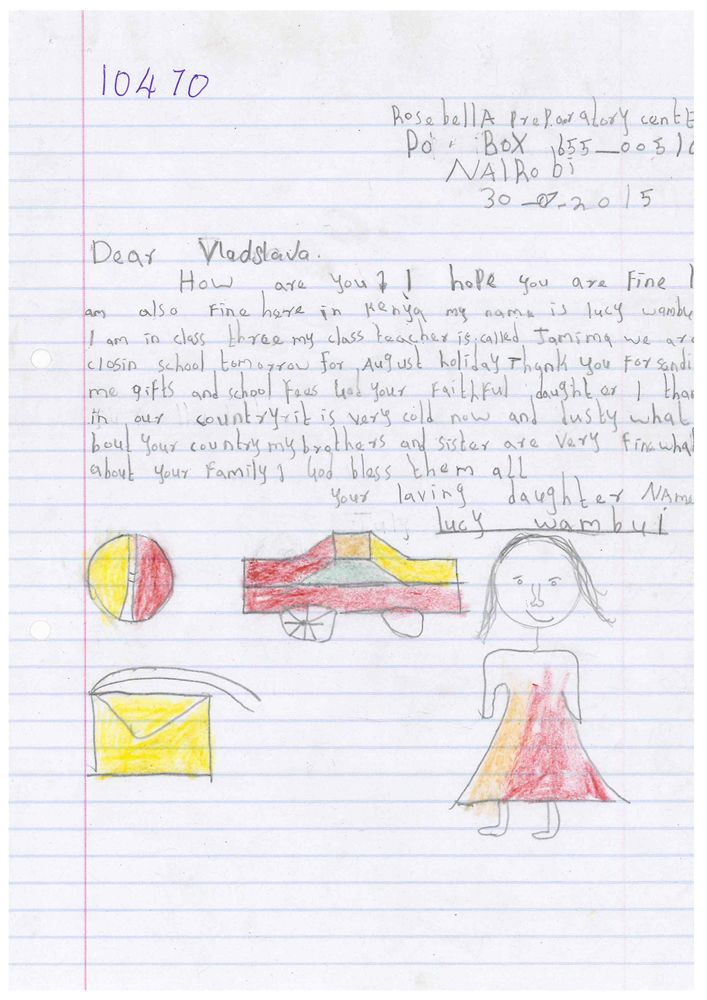 10470
Rosebella preparatory cent
Po. BOX 655_0051
NAIRobi
30-07-2015
Dear Vladslava.
How are you? I hope you are fine I
am also Fine here in Kenya my name is lucy wambu
I am in class three my class teacher is called Jamima we are
closin school tomorrow for August holiday Thank you For sendi
me gifts and school Fees God your Faithful daughter I than
in our country it is very cold now and dusty what
bout your country my brothers and sister are very Fine what
about your Family? God bless them all
your laving daughter NAME
lucy wambui